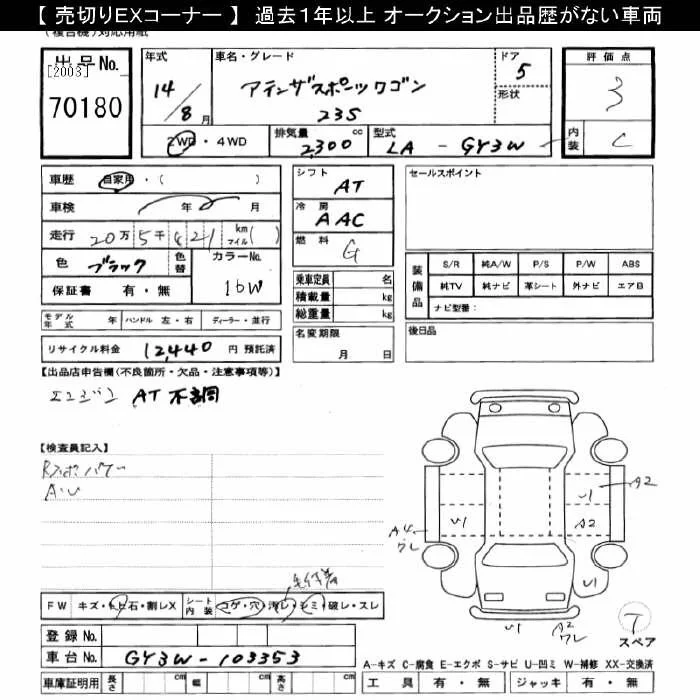 【 売切りEXコーナー 】 過去1年以上 オークション出品歴がない車両
出品No.
[2003]
70180
年式
14/8月
車名・グレード
アテンザスポーツワゴン
23S
ドア
5
形状
評価点
3
内装
C
2WD・4WD
排気量
2,300cc
型式
LA - GY3W
車歴 自家用・( )
車検 年 月
走行 20万5千821 km マイル( )
色 ブラック 色替 カラーNo. 16W
保証書 有・無
モデル年式 年 ハンドル 左・右 ディーラー・並行
リサイクル料金 12,440 円 預託済
シフト AT
冷房 AAC
燃料 G
乗車定員 名
積載量 kg
総重量 kg
名変期限
月 日
セールスポイント
装備品
S/R 純A/W P/S P/W ABS
純TV 純ナビ 革シート 外ナビ エアB
ナビ型番:
後日品
【出品店申告欄(不良箇所・欠品・注意事項等)】
エンジン AT 不調
【検査員記入】
A・U
A2
U1
U1
A2
A4
U1
U1
A2
F W キズ・トビ石・割レX シート内装 コゲ・穴・汚レ・シミ・破レ・スレ
登録 No.
車台 No. GY3W-103353
車庫証明用 長さ cm 幅 cm 高さ cm
T
スペア
A-キズ C-腐食 E-エクボ S-サビ U-凹ミ W-補修 XX-交換済
工具 有・無 ジャッキ 有・無